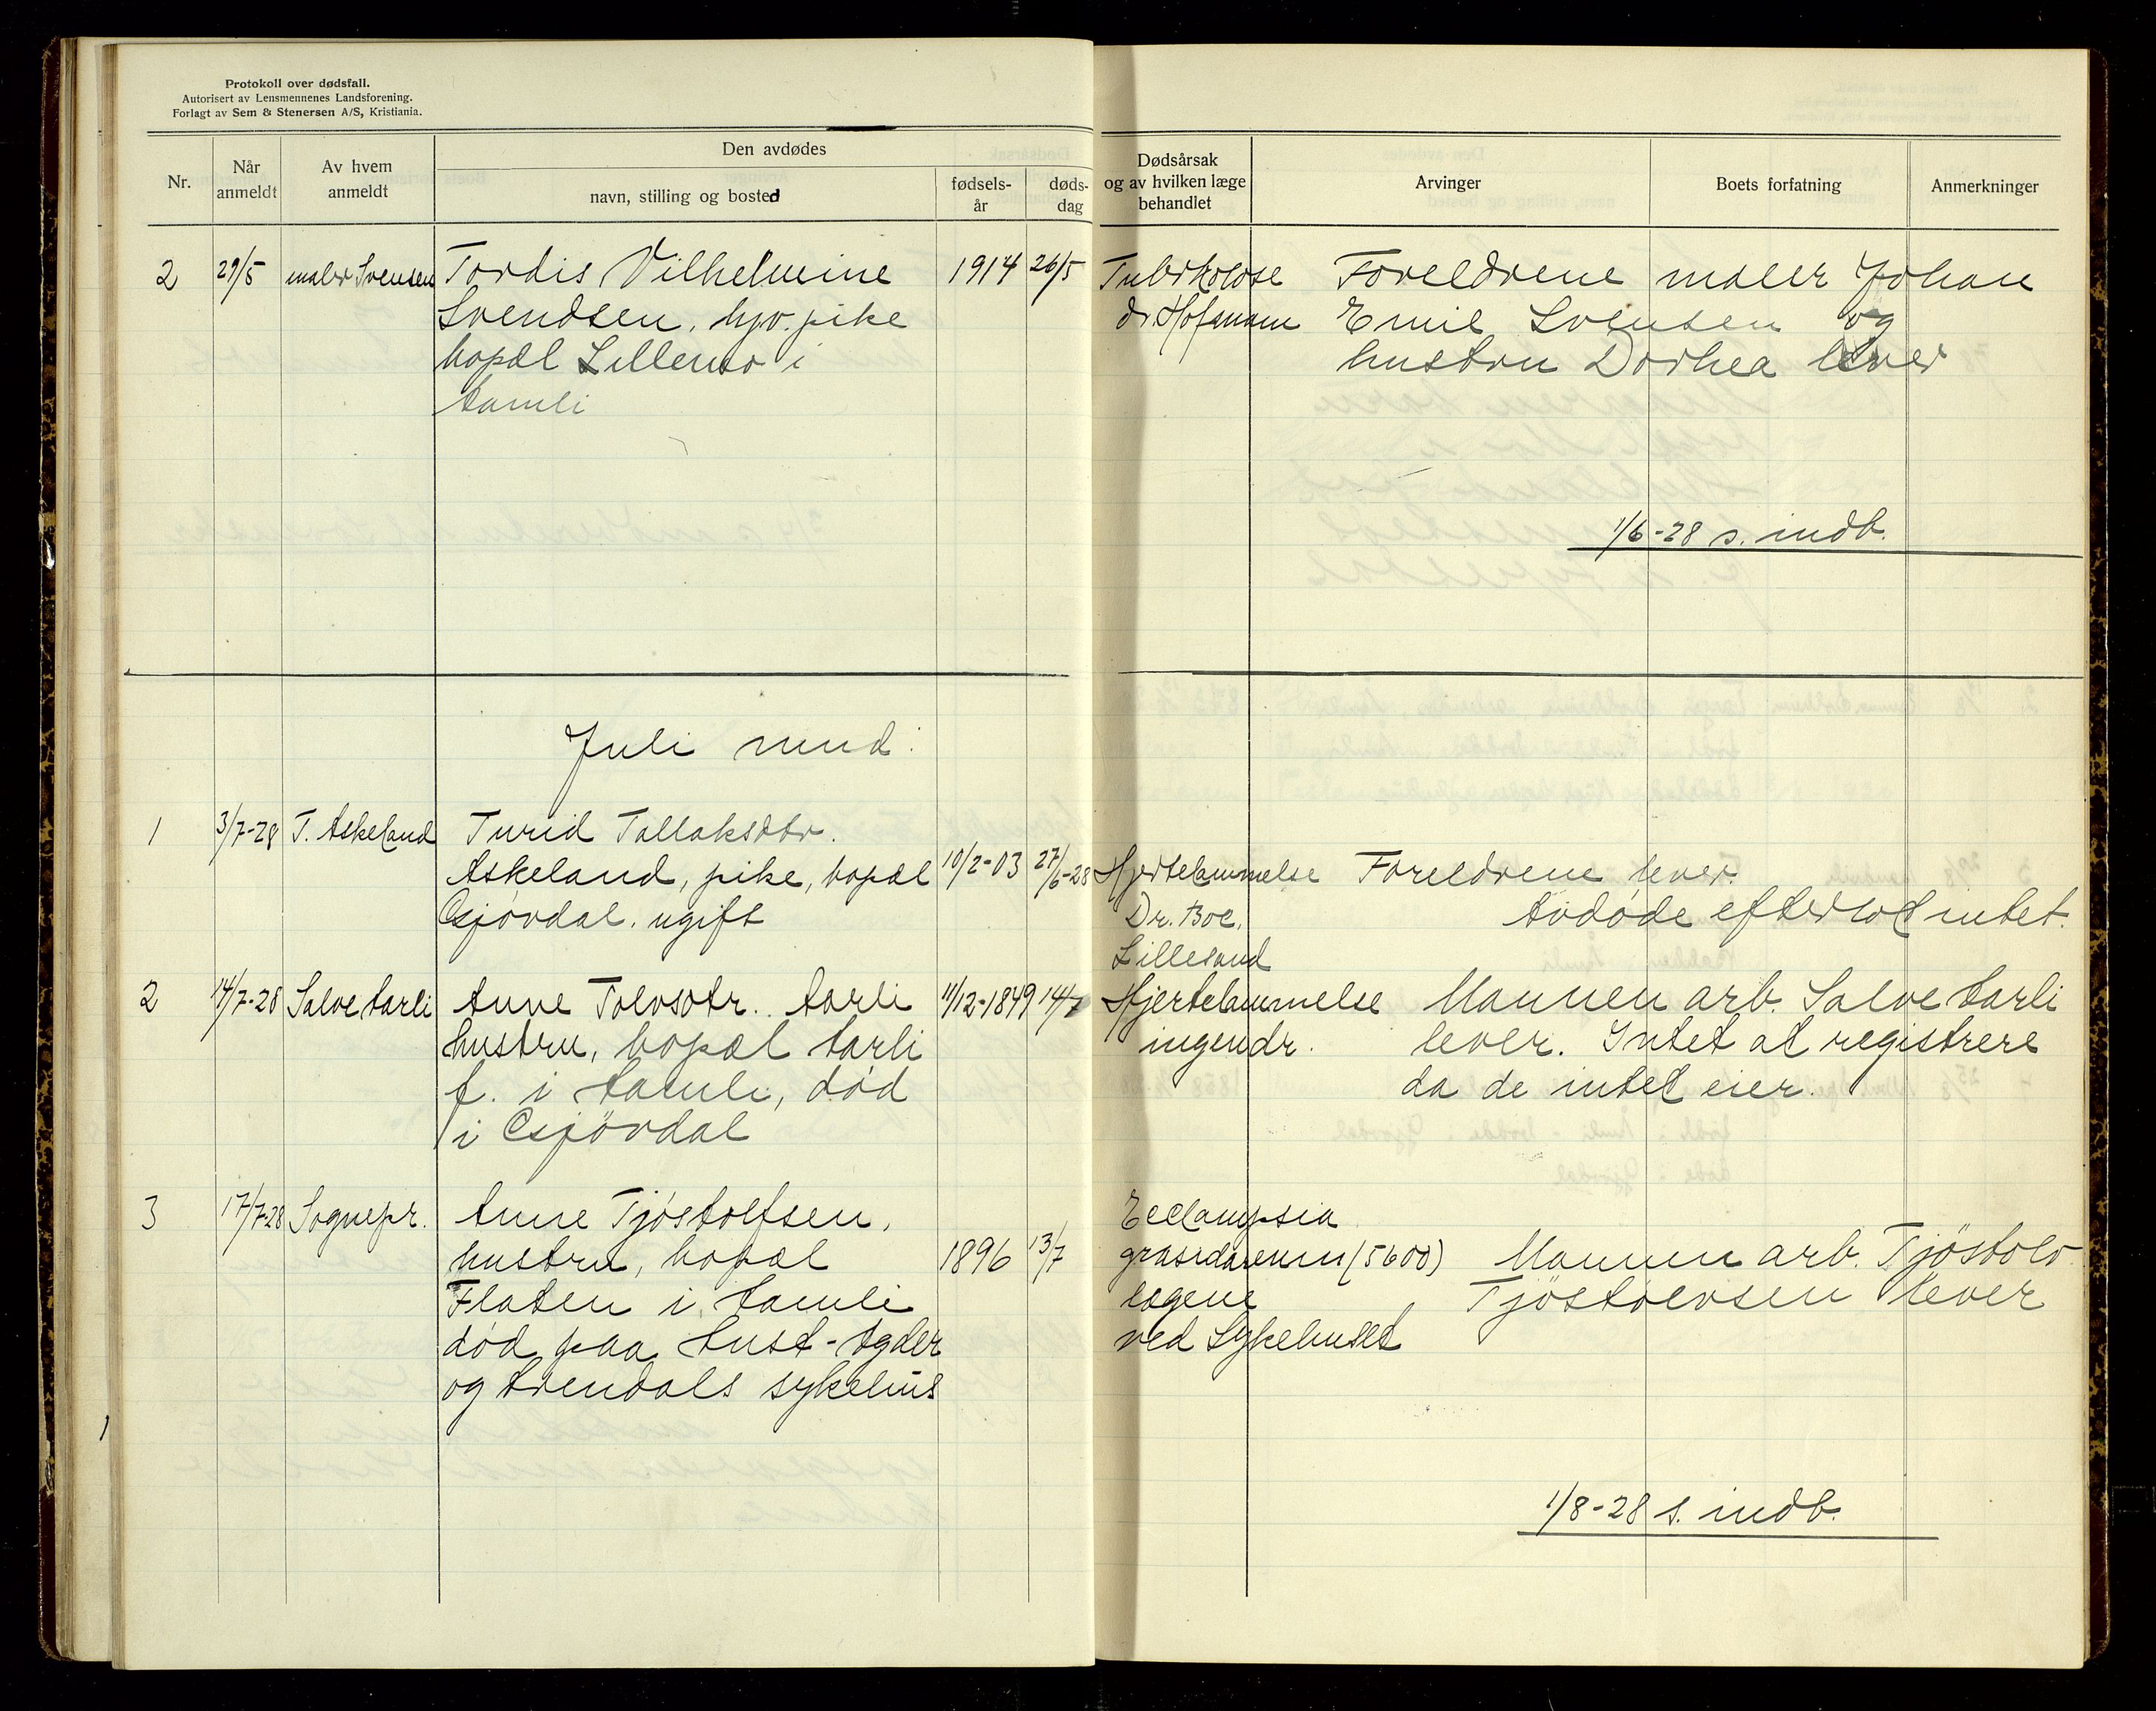 Protokoll over dødsfall.
Autorisert av Lensmennenes Landsforening.
Forlagt av Sem & Stenersen A/S, Kristiania.
Nr. Når anmeldt Av hvem anmeldt Den avdødes navn, stilling og bosted fødsels-år døds-dag Dødsårsak og av hvilken læge behandlet Arvinger Boets forfatning Anmerkninger
2 29/5 maler Svensen Tordis Vilhelmine 1914 26/5 Tuberkolose Foreldrene maler Johan
Svendsen, hjv. pike dr. Hofmann Emil Svensen og
bopæl Lillemo i hustru Dorhea lever
Aamli
1/6-28 s. indb.
Juli mnd:
1 3/7-28 T. Askeland Turid Tallaksdtr.
Askeland, pike, bopæl 10/2-03 27/6-28 Hjertelammelse Foreldrene lever.
Gjövdal. ugift Dr. Boe, Avdøde efterlot intet.
Lillesand
2 14/7-28 Salve Aarli Anne Tolvsdtr. Aarli 11/12-1849 14/7 Hjertelammelse Mannen arb. Salve Aarli
hustru, bopæl Aarli ingen dr. lever. Intet at registrere
f. i Aamli, död da de intet eier.
i Gjövdal
3 17/7-28 Sognepr. Anne Tjöstolfsen, Eclampsia
hustru, bopæl 1896 13/7 (5600) Mannen arb. Tjöstolv
Flaten i Aamli lægene Tjöstolvsen lever
död paa Aust-Agder ved Sykehuset
og Arendals sykehus
1/8-28 s. indb.